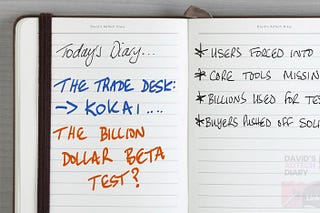 David's Adtech Diary
Today's Diary...
THE TRADE DESK:
-> KOKAI ....
THE BILLION
DOLLAR BETA
TEST?
David's Adtech Diary
* USERS FORCED INTO
* CORE TOOLS MISSIN
* BILLIONS USED FOR TES
* BUYERS PUSHED OFF SOL
DAVID'S
ADTECH
DIARY